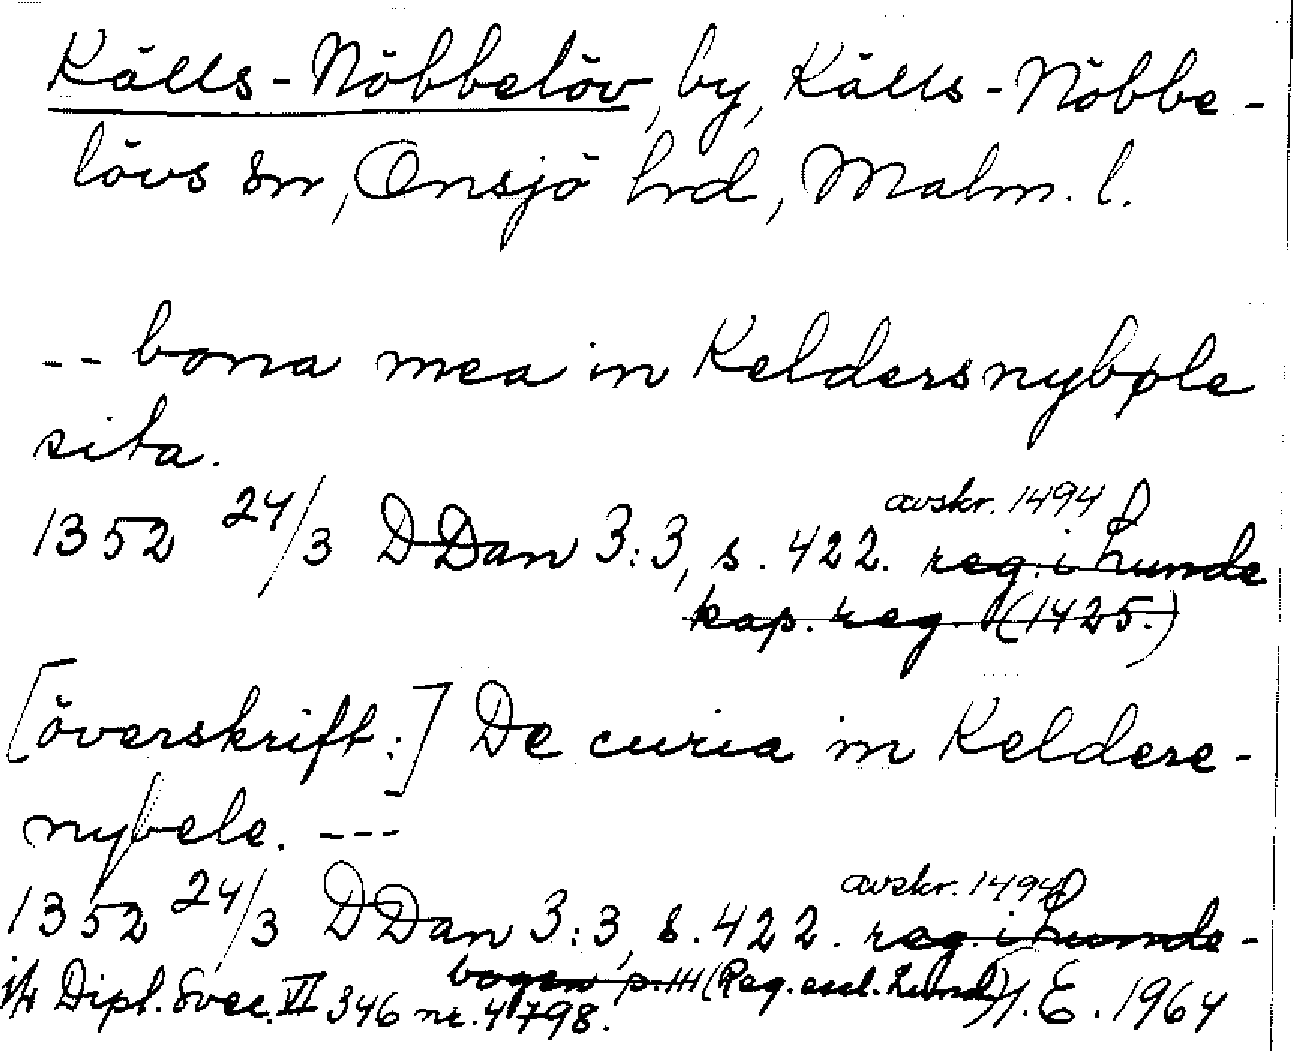 Källs-Nöbbelöv, by, Källs-Nöbbe-
lövs sn, Onsjö hrd, Malm. l.
-- bona mea in Keldersnybøle
sita.
avskr. 1494
1352 24/3 DDan 3:3, s. 422. reg. i Lunde
kap. reg. (1425.)
[överskrift:] De curia in Keldere-
nybele. ---
avskr. 1494
1352 24/3 DDan 3:3, s. 422. reg. i Lunde-
bogen p. 111 (Reg. eccl. Lund.)
Dipl. Svec. VI 346 nr. 4798. I.E. 1964